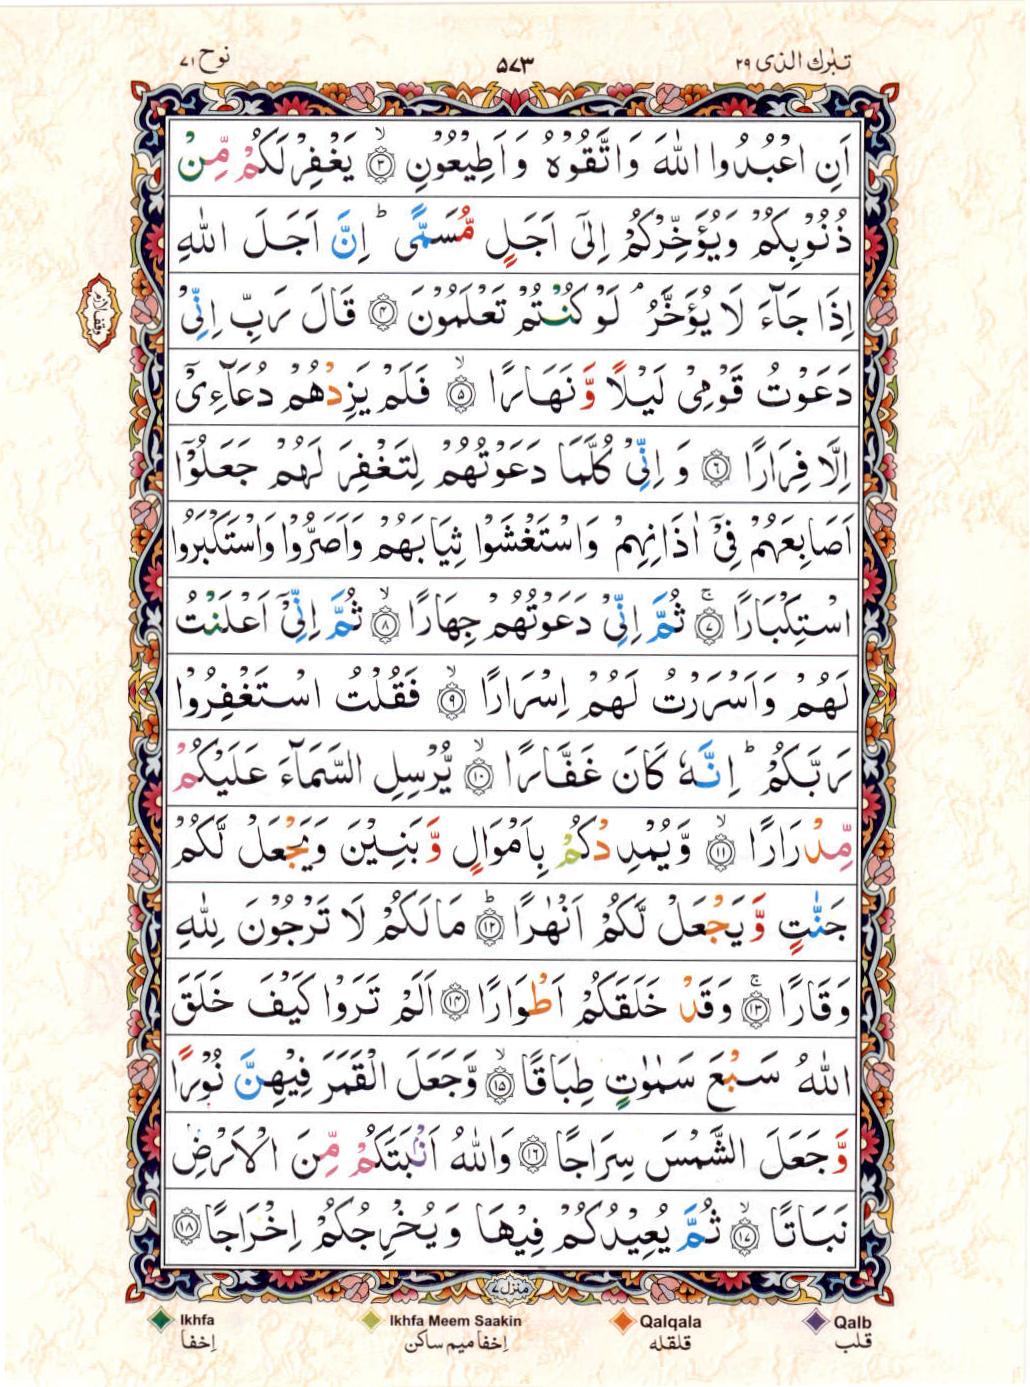 تبٰرك الذی ٢٩
٥٧٣
نوح ٧١
اَنِ اعْبُدُوا اللّٰهَ وَاتَّقُوْهُ وَاَطِيْعُوْنِ ۙ﴿٣﴾ يَغْفِرْ لَكُمْ مِّنْ
ذُنُوْبِكُمْ وَيُؤَخِّرْكُمْ اِلٰٓى اَجَلٍ مُّسَمًّى ؕ اِنَّ اَجَلَ اللّٰهِ
اِذَا جَآءَ لَا يُؤَخَّرُ ۘ لَوْ كُنْتُمْ تَعْلَمُوْنَ ﴿٤﴾ قَالَ رَبِّ اِنِّىْ
دَعَوْتُ قَوْمِىْ لَيْلًا وَّنَهَارًا ۙ﴿٥﴾ فَلَمْ يَزِدْهُمْ دُعَآءِىْۤ
اِلَّا فِرَارًا ﴿٦﴾ وَاِنِّىْ كُلَّمَا دَعَوْتُهُمْ لِتَغْفِرَ لَهُمْ جَعَلُوْۤا
اَصَابِعَهُمْ فِىْۤ اٰذَانِهِمْ وَاسْتَغْشَوْا ثِيَابَهُمْ وَاَصَرُّوْا وَاسْتَكْبَرُوا
اسْتِكْبَارًا ۚ﴿٧﴾ ثُمَّ اِنِّىْ دَعَوْتُهُمْ جِهَارًا ۙ﴿٨﴾ ثُمَّ اِنِّىْۤ اَعْلَنْتُ
لَهُمْ وَاَسْرَرْتُ لَهُمْ اِسْرَارًا ۙ﴿٩﴾ فَقُلْتُ اسْتَغْفِرُوْا
رَبَّكُمْ ؕ اِنَّهٗ كَانَ غَفَّارًا ۙ﴿١٠﴾ يُّرْسِلِ السَّمَآءَ عَلَيْكُمْ
مِّدْرَارًا ۙ﴿١١﴾ وَّيُمْدِدْكُمْ بِاَمْوَالٍ وَّبَنِيْنَ وَيَجْعَلْ لَّكُمْ
جَنّٰتٍ وَّيَجْعَلْ لَّكُمْ اَنْهٰرًا ؕ﴿١٢﴾ مَا لَكُمْ لَا تَرْجُوْنَ لِلّٰهِ
وَقَارًا ۚ﴿١٣﴾ وَقَدْ خَلَقَكُمْ اَطْوَارًا ﴿١٤﴾ اَلَمْ تَرَوْا كَيْفَ خَلَقَ
اللّٰهُ سَبْعَ سَمٰوٰتٍ طِبَاقًا ۙ﴿١٥﴾ وَّجَعَلَ الْقَمَرَ فِيْهِنَّ نُوْرًا
وَّجَعَلَ الشَّمْسَ سِرَاجًا ﴿١٦﴾ وَاللّٰهُ اَنْۢبَتَكُمْ مِّنَ الْاَرْضِ
نَبَاتًا ۙ﴿١٧﴾ ثُمَّ يُعِيْدُكُمْ فِيْهَا وَيُخْرِجُكُمْ اِخْرَاجًا ﴿١٨﴾
منزل ٧
Ikhfa Ikhfa Meem Saakin Qalqala Qalb
إخفا إخفا ميم ساكن قلقله قلب